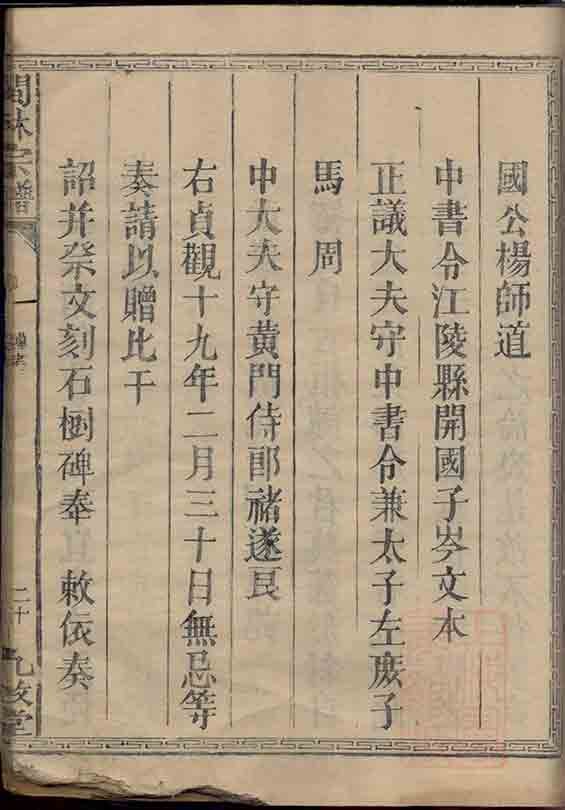 國公楊師道
中書令江陵縣開國子岑文本
正議大夫守中書令兼太子左庶子
馬周
中大夫守黃門侍郎禇遂良
右貞觀十九年二月三十日無忌等
奏請以贈比干
詔并祭文刻石樹碑奉 敕依奏
林宗譜
二十